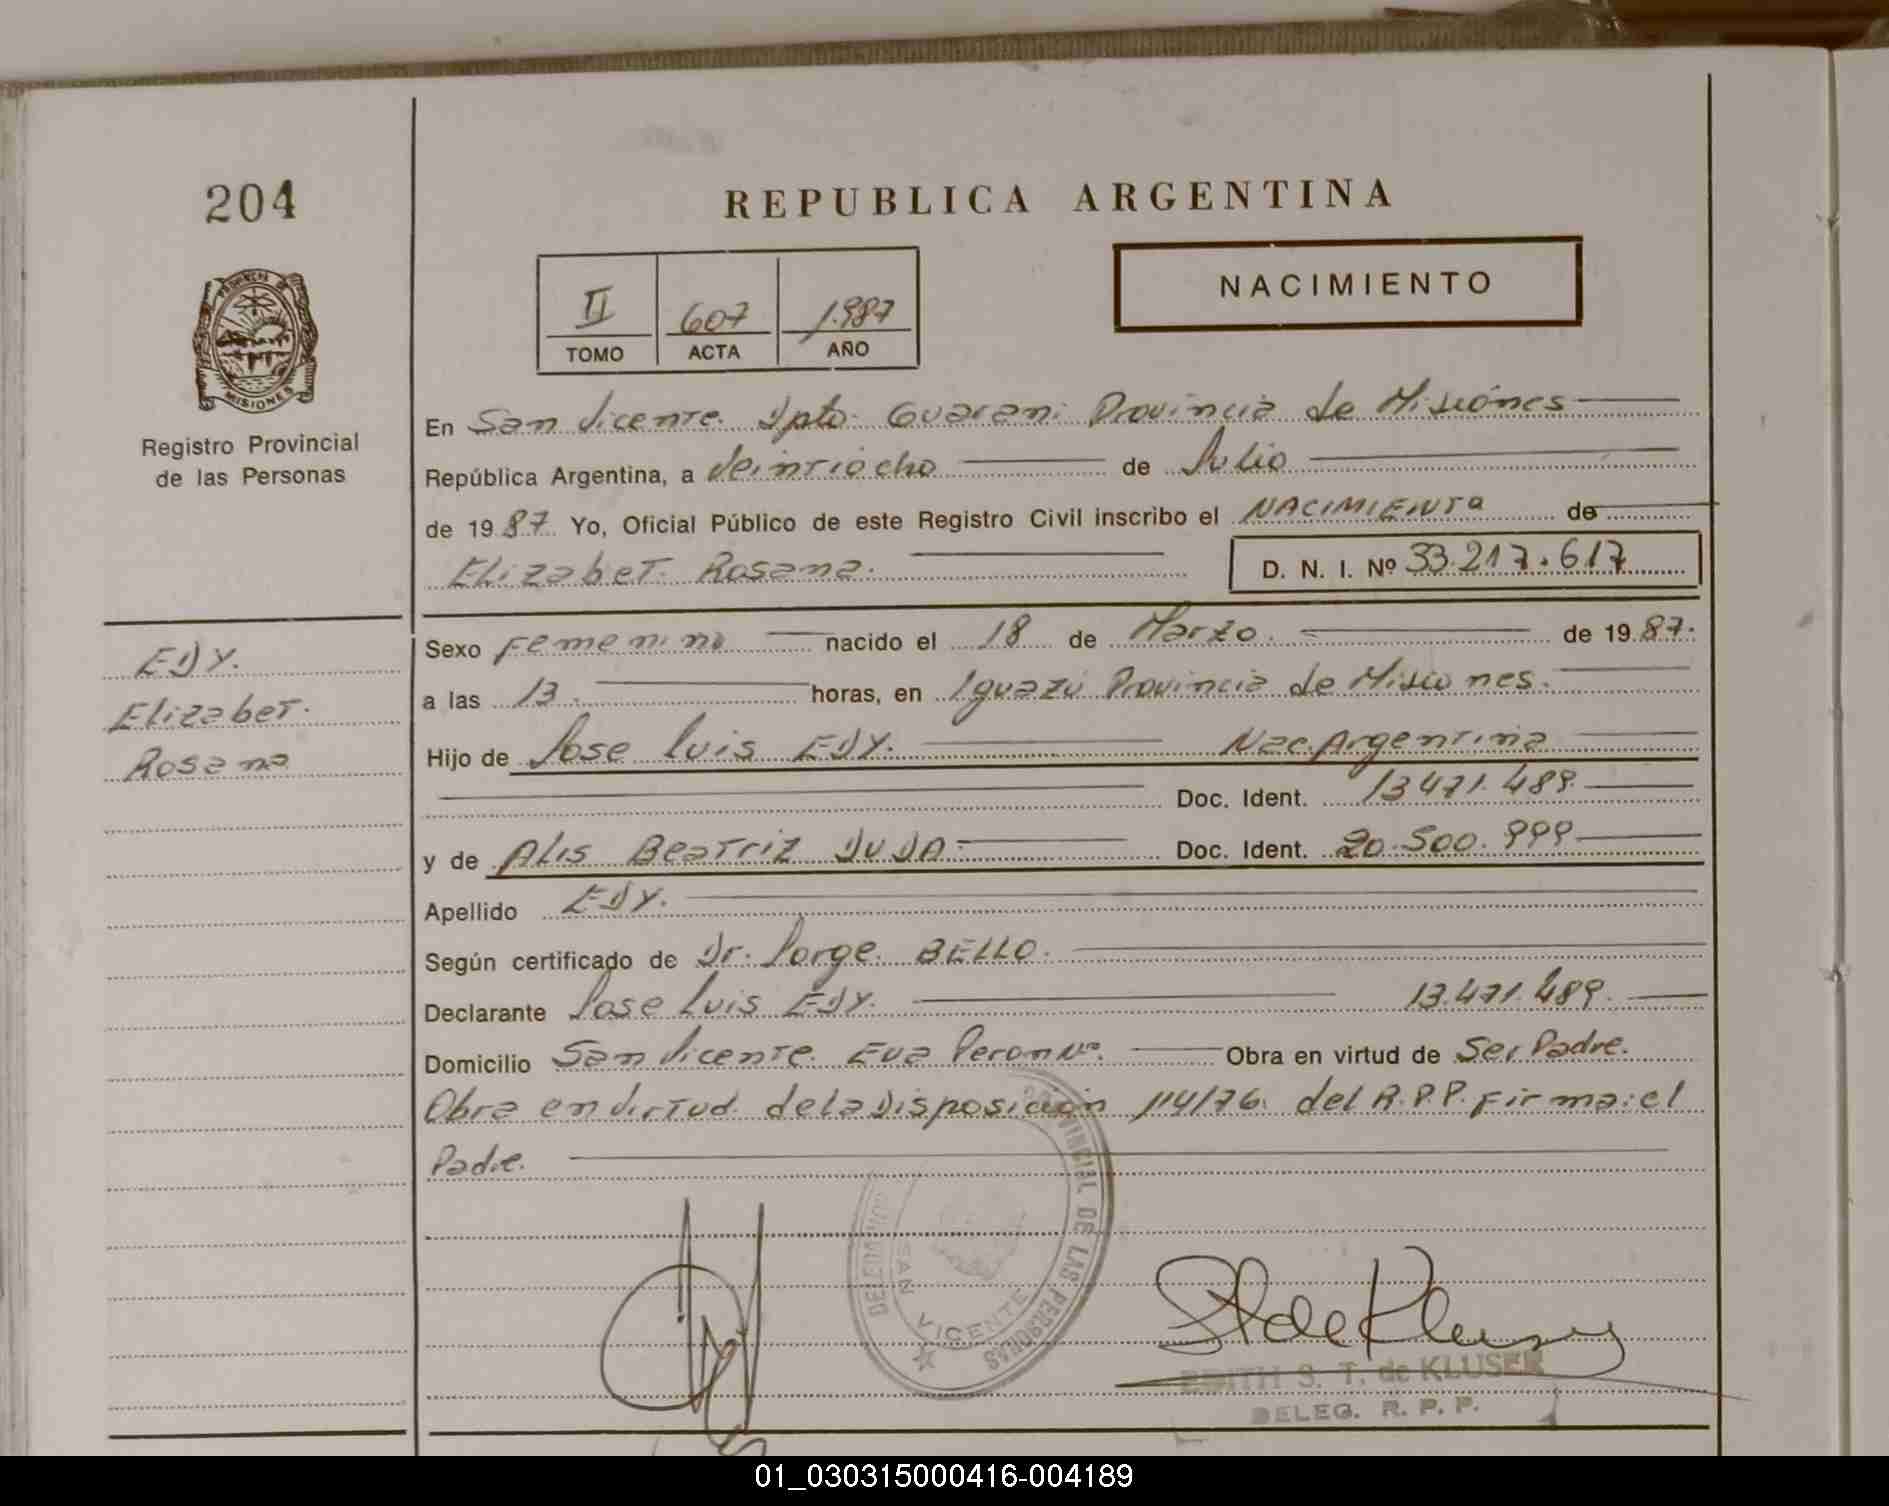 204
REPUBLICA ARGENTINA
NACIMIENTO
II 607 1.987
TOMO ACTA AÑO
PROVINCIA DE MISIONES
Registro Provincial
de las Personas
En San Vicente. Dpto. Guarani Provincia de Misiónes
República Argentina, a Veintiocho de Julio
de 1987. Yo, Oficial Público de este Registro Civil inscribo el NACIMIENTO de
Elizabet. Rosana.
D. N. I. Nº 33.217.617
EDY.
Elizabet.
Rosana
Sexo Femenino nacido el 18 de Marzo. de 1987.
a las 13. horas, en Iguazú Provincia de Misiones.
Hijo de Jose Luis EDY. Nac. Argentina
Doc. Ident. 13.471.489.
y de Alis Beatriz DUDA Doc. Ident. 20.500.999
Apellido EDY.
Según certificado de Dr. Jorge. BELLO.
Declarante Jose Luis EDY. 13.471.489.
Domicilio San Vicente. Eva Peron Nº. Obra en virtud de Ser Padre.
Obra en virtud de la Disposición 114/76. del R.P.P. Firma: el
Padre.
PROVINCIAL DE LAS PERSONAS
SAN VICENTE
EDITH S. T. de KLUSER
DELEG. R. P. P.
01_030315000416-004189